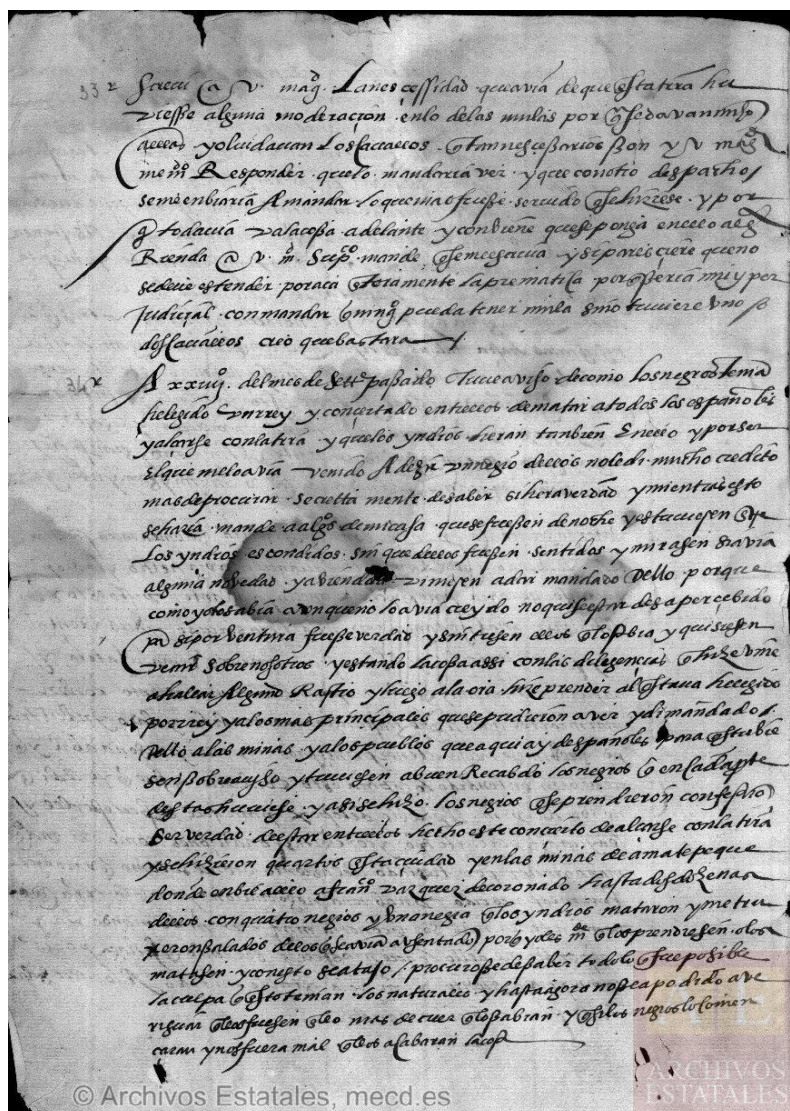 33 screui a v. magd. la nescessidad que avia de que esta tierra hu
viesse alguna moderaçion en lo de las mulas por q se davan mucho
a ellas y olvidavan los cavallos q tan nesçessarios son y v. magd
me mdo Responder que lo mandaria ver y que con otro despacho
se me enbiaria A mandar lo que mas fuesse servido q se hiziese y por
q todavia va la cossa adelante y conviene que se ponga en ello alga
Rienda a v. m. suppco mande q se me escriva y si paresciere que no
se deve estender por aca enteramente la prematica por q seria muy per
Judiçial con mandar q ningo pueda tener mula sino tuviere uno o
dos cavallos creo que bastara
34 A xxiiijo del mes de setre passado tuve aviso de como los negros tenian
helegido un rrey y conçertado entre ellos de matar a todos los españoles
y alçarse con la tierra y que los yndios heran tanbien En ello y por ser
El que me lo avia venido A dezir un negro dellos no le di mucho credito
mas de procurar secretta mente de saber si hera verdad y mientras esto
se hazia mande a algos de mi casa que se fuesen de noche y estuviesen entre
los yndios escondidos sin que dellos fuesen sentidos y mirasen si avia
alguna novedad y aviendola viniesen a dar mandado dello porque
como yo lo sabia aunque no lo avia creydo no quise estar desaperçebido
pa si por ventura fuesse verdad y sintiesen ellos q lo sabia y quisiesen
venir sobre nosotros y estando la cossa assi con las diligençias q hize vine
a hallar Algun Rastro y luego a la ora hize prender al q estava helegido
por rrey y a los mas prinçipales que se pudieron aver y di mandado
dello a las minas y a los pueblos que aqui ay despañoles para q estuvie
sen sobre aviso y tuviesen a buen Recabdo los negros q en cada parte
destas huviese y asi se hizo los negros q se prendieron confesaron
ser verdad de estar entre ellos hecho este conçierto de alçarse con la tierra
y se hizieron quartos en esta çiudad y en las minas de amatepeque
donde enbie a ello a franco vazquez de coronado hasta dos dozenas
dellos con quatro negros y una negra q los yndios mataron y me tru
xeron salados dellos q se avian absentado porq yo les mde q los prendiesen o los
matasen y con esto se atajo procurose de saber todo lo q fue posible
la culpa q en esto tenian los naturales y hasta agora no se a podido ave
riguar q ellos fuesen en ello mas de creer q lo sabian y q si los negros lo comen
caran y nos fuera mal q ellos acabaran la cosa
© Archivos Estatales, mecd.es
ARCHIVOS
ESTATALES